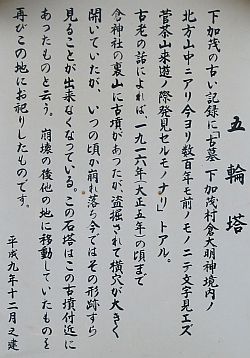 五輪塔
下加茂の古い記録に「古墓 下加茂村倉大明神境内ノ
北方山中ニアリ今ヨリ数百年モ前ノモノニテ文字見エズ
菅茶山来遊ノ際発見セルモノナリ」トアル。
古老の話によれば、一九一六年(大正五年)の頃まで
倉神社の裏山に古墳があったが、盗掘されて横穴が大きく
開いていたが、いつの頃か崩れ落ち今ではその形跡すら
見ることが出来なくなっている。この石塔はこの古墳付近に
あったものと云う。崩壊の後他の地に移動していたものを
再びこの地にお祀りしたものです。
平成九年十二月 建